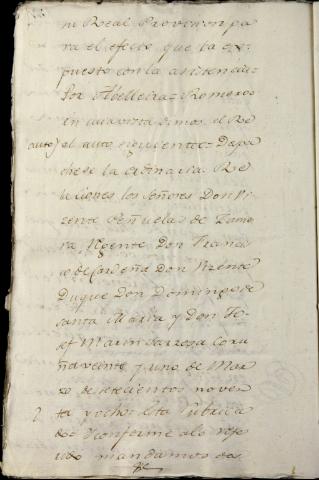 ni Real Provision pa
ra el efecto que ba ex-
puesto con la asistencia=
Lor Abelleira= Romero=
en cuia vista dimos el Re
auto) el auto siguiente= Despa
chese la ordinaria. Re
laciones los señores Don Vi
zente Peñuelas de Zamo
ra, Regente Don Franzis
co de Cardeña Don Vizente
Duque Don Domingo de
santa Maria y Don Jo
sef Marin Sarresa Coru
ña veinte y uno de Mar
zo de setecientos noven
ta y ocho= Esta rubrica
do= Y conforme a lo refe
rido mandamos da